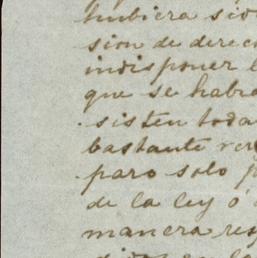 hubiera sid
sion de derec
indisponer l
que se habia
sisten toda
bastante ver
paro solo p
de la ley ó
manera res